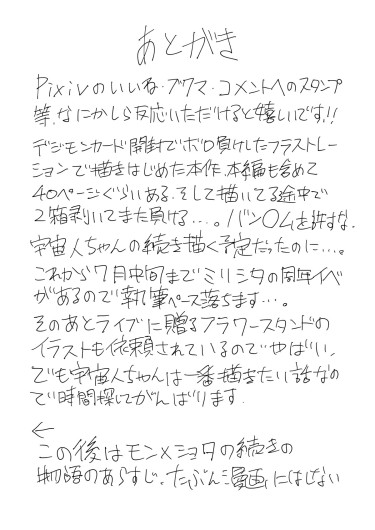 あとがき
Pixivのいいね・ブクマ・コメントへのスタンプ
等、なにかしら反応いただけると嬉しいです!!
デジモンカード開封でボロ負けしたフラストレー
ションで描きはじめた本作、本編も含めて
40ページぐらいある。そして描いてる途中で
2箱剥いてまた負ける…。バン〇ムを許すな。
宇宙人ちゃんの続き描く予定だったのに…。
これから7月中旬までミリシタの周年イベ
があるので執筆ペース落ちます…。
そのあとライブに贈るフラワースタンドの
イラストも依頼されているのでやばい。
でも宇宙人ちゃんは一番描きたい話なの
で時間探してがんばります。
←
この後はモン×ショタの続きの
物語のあらすじ。たぶん漫画にはしない